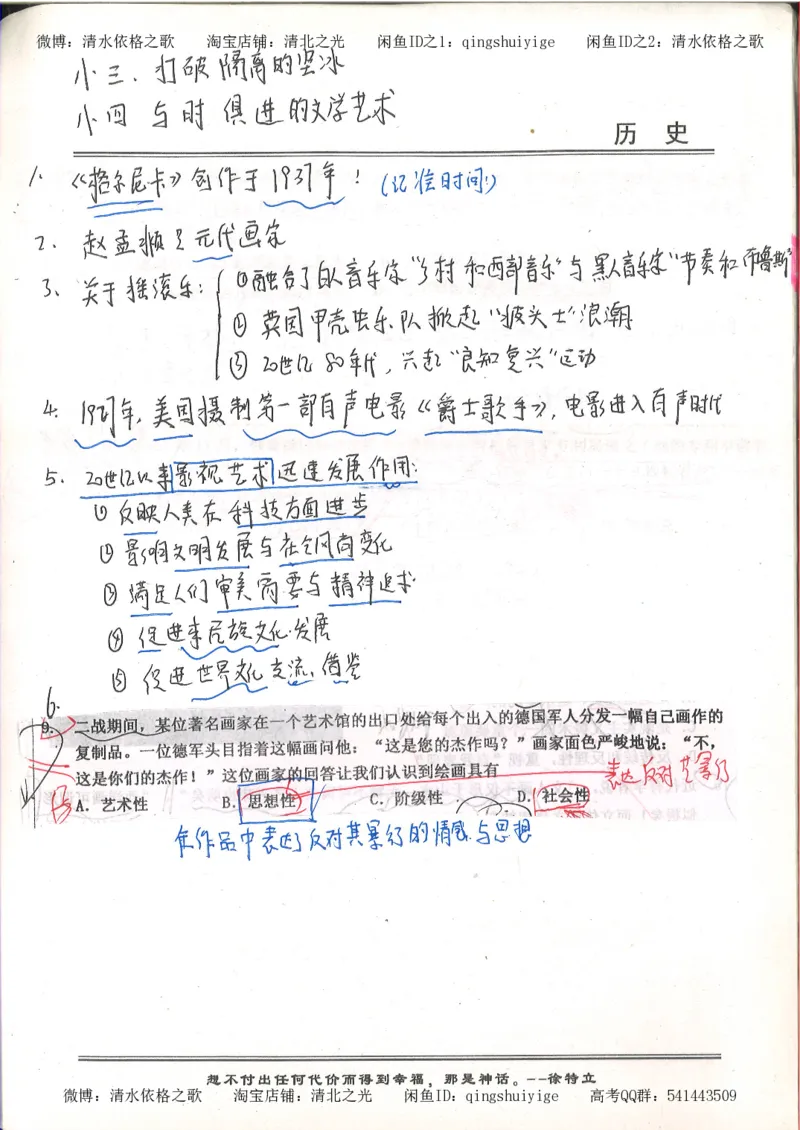 微博：清水依格之歌 淘宝店铺：清北之光 闲鱼ID之1：qingshuiyige 闲鱼ID之2：清水依格之歌
小三、打破隔离的坚冰
小四 与时俱进的文学艺术
历 史
1. 《格尔尼卡》创作于1937年！（记准时间！）
2. 赵孟頫是元代画家
3. 关于摇滚乐：①融合了白人音乐家“乡村和西部音乐”与黑人音乐家“节奏和布鲁斯”
② 英国甲壳虫乐队掀起“披头士”浪潮
③ 20世纪80年代，兴起“良知复兴”运动
4. 1927年，美国摄制第一部有声电影《爵士歌手》，电影进入有声时代
5. 20世纪以来影视艺术迅速发展作用：
① 反映人类在科技方面进步
② 影响文明发展与社会风尚变化
③ 满足人们审美需要与精神追求
④ 促进本民族文化发展
⑤ 促进世界文化交流、借鉴
6.
9. 二战期间，某位著名画家在一个艺术馆的出口处给每个出入的德国军人分发一幅自己画作的
复制品。一位德军头目指着这幅画问他：“这是您的杰作吗？”画家面色严峻地说：“不，
这是你们的杰作！”这位画家的回答让我们认识到绘画具有
表达反对其暴行
A. 艺术性 B. 思想性 C. 阶级性 D. 社会性
在作品中表达了反对其暴行的情感与思想
想不付出任何代价而得到幸福，那是神话。--徐特立
微博：清水依格之歌 淘宝店铺：清北之光 闲鱼ID：qingshuiyige 高考QQ群：541443509